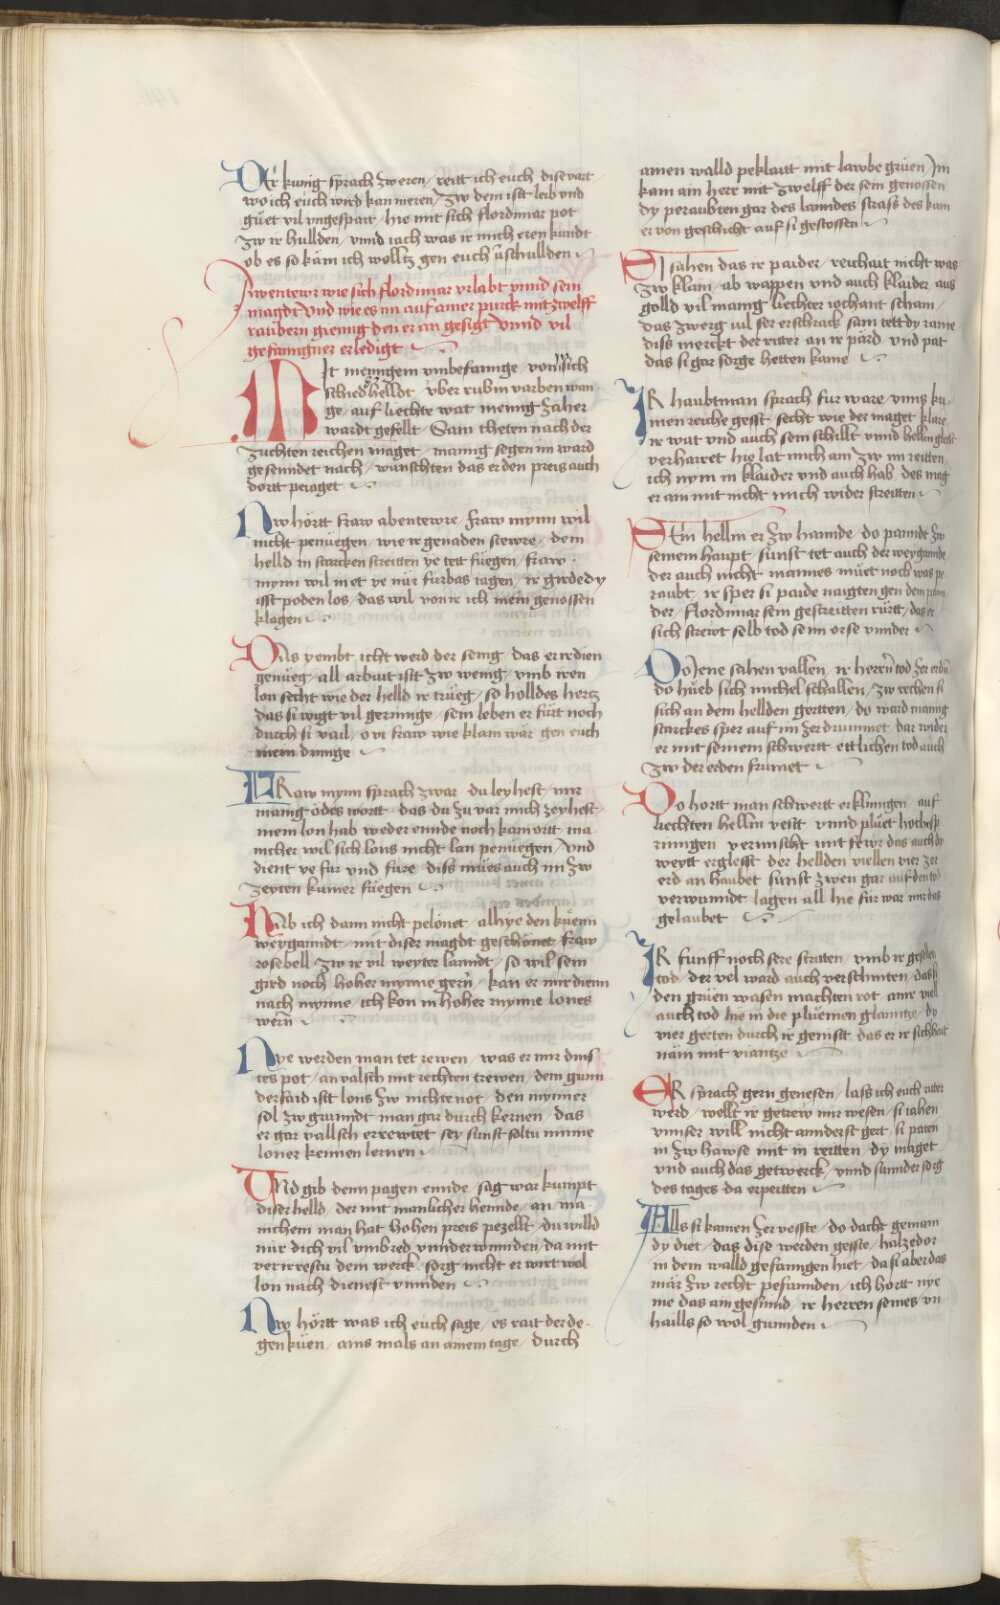 Der kunig sprach zweren / reitt ich euch disevart
wo ich euch wird kan meren / zw dem istt leib vnd
güet vil vngespart / hie mit sich flordimar pot
zw ir hullden / vnnd iach was ir mich eren kundt
ob es so käm ich wolltz gen euch üschullden
Awentewr wie sich flordimar vrlabt vnnd sein
magdt Vnd wie es im auf ainer purck mit zwelff
raubern gienng den er an gesigt Vnnd vil
gefanngner erledigt
Mit mennigem vmbefannge / von sich
schied helldt / vber rubin varben wan
ge / auf liechte wat mennig zaher
wardt gefellt / Sam theten nach der
zuchten reichen maget / mannig segen im ward
gesenndet nach / wunschten das er den preis auch
dortt peiaget
Nw hörtt fraw abentewre / fraw mynn wil
nicht penüegen / wie ir genaden stewre / dem
helld in starcken streitten ye tett füegen / fraw
mynn wil in et ye nür fürbas iagen / ir girde dy
istt poden los / das wil von ir ich mein genossen
klagen
Ob's yembt icht werd der seinig / das er ir dien
genueg / all arbait istt zw wenig / vmb iren
lon secht wie der helld ir trüeg / so holldes hertz
das si wigt vil geringe / sein leben er fürt noch
durch si vail / o vi fraw wie klain wär gen euch
mein dinnge
FRaw mynn sprach zwar du leyhest / mir
mänig ödes wortt / das du zu var mich zeyhest
mein lon hab weder ennde noch kain ortt ma
nicher wil sich lons nicht lan penüegen / vnd
dient ye für vnd füre / diss mües auch im zw
zeyten kumer füegen
Hab ich dann nicht pelonet / allhye den küenn
weyganndt / mit diser magdt geschönet / fraw
rosebell zw ir vil weyter lanndt / so wil sein
gird noch hoher mynne gern / kan er mir dienn
nach mynne / ich kon in hoher mynne lones
wern
Nye werden man tet rewen / was er mir dins
tes pot / an valsch mit rechten trewen / dem gunn
derfaid istt lons zw nichte not / den mynner
sol zw grunndt man gar durch kernen / das
er gar vallsch errewtet sey / sunst soltu minne
loner kennen lernen
Vnd gib denn pagen ennde / sag war kumpt
diser helld / der mit manlicher hennde / an ma
nichem man hat hohen preis pezellt / du willd
mir dich vil vmbred vnnderwinnden / da mit
verirrestu dem werck / sorg nicht er wirt wol
lon nach dienest vinnden
Nw hörtt was ich euch sage / es rait der de
gen küen / ains mals an ainem tage / durch
ainen walld peklaitt mit lawbe grüen / Im
kam ain herr mit zwelff der sein genossen
dy peraubten gar des lanndes strass des kam
er von geschicht auf si gestossen
SI sahen das ir paider / reichait nicht was
zw klain / ab wappen vnd auch klaider / aus
golld vil manig liechter iochant schain /
das zwerg vil ser erschrack sam tett dy raine
diss merckt der ritter an ir paid / vnd pat
das si gar sorge hetten kaine
IR haubtman sprach fur ware / vnns ku
men reiche gesst / secht wie der maget klare
ir wat vnd auch sein schillt vnnd hellm glesst
verharret hie lat mich ain zw im reitten
ich nym in klaider vnd auch hab / des mag
er ain mit nicht mich wider streitten
SEin hellm er zw hannde / do panndt zw
seinem haupt / sunst tet auch der weygannde
der auch nicht mannes müet noch was pe
raubt / ir sper si paide naigten gen dem
der / flordimar sein gestreitten rürtt / das er
sich strewt selb tod senn orse vnnder
DO Jene sahen vallen / ir herrn tod zer erdn
do hüeb sich michel schallen / zw rechen si
sich an dem hellden gertten / do ward mannig
starckes sper auf im zerdrummet / dar wider
er mit seinem schwertt ettlichen tod auch
zw der erden frumet
Do hortt man schwertt erklinngen / auf
liechten hellm vestt / vnnd plüet hoch
rinngen / vermischt mit fewr das auch dy
weytt erglesst / der hellden viellen vier zer
erd an haubet / sunst zwen gar auf den tod
verwunndt lagen all hie fur war mir das
gelaubet
IR funff noch sere stritten / vmb ir gesellen
tod / der vel ward auch verschniten / das si
den grüen wasen machten rot / ainr viell
auch tod hie in die plüemen glanntze / dy
vier gerten durch ir genistt / das er ir sichhait
näm mit viantze
ER sprach gern genesen / lass ich euch ritter
werd / wellt ir getrew mir wesen / si iahen
vnnser will nicht annderst gert / si paten
in zw hawse mit in reitten / dy maget
vnd auch das getwerck / vnnd sunnder sorg
des tages da erpeitten
Alls si kamen zer vesste / do dacht gemain
dy diet / das dise werden gesste / halzedor
in dem walld gefanngen hiet / da si aber das
mär zw recht pefunnden / ich hortt nye
me das ain gesinnd / ir herren seines vn
haills so wol gunnden